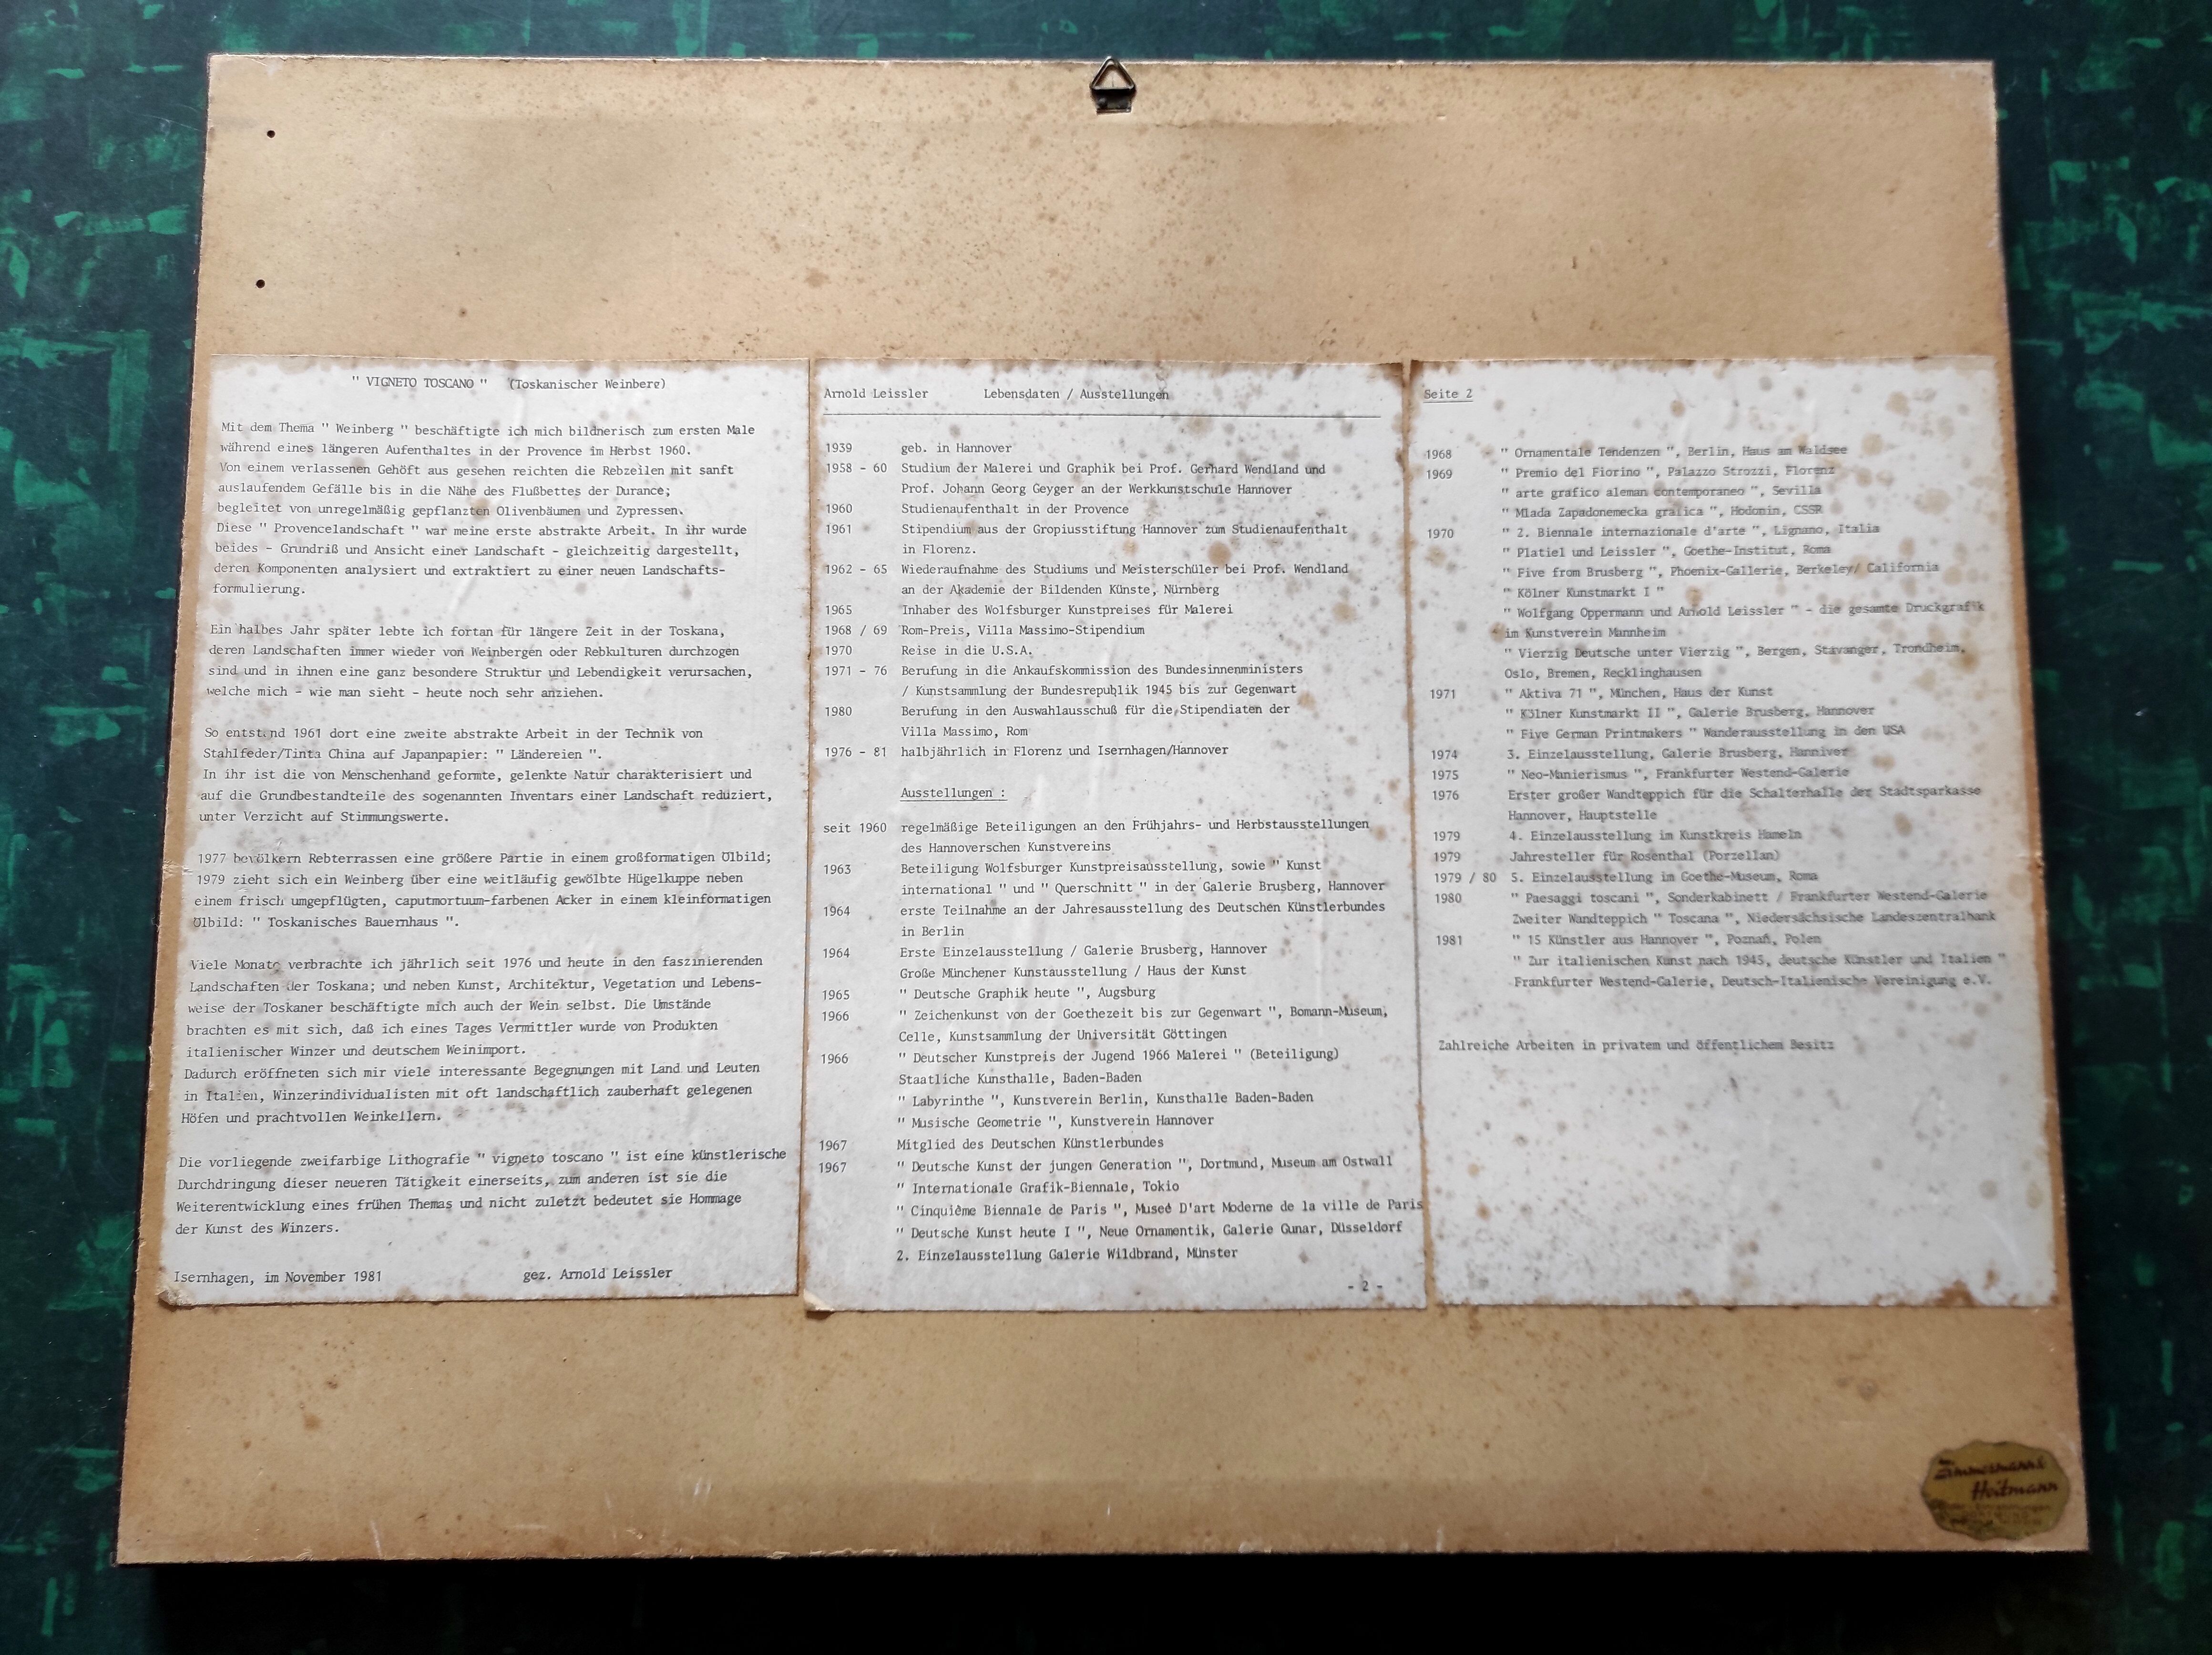 " VIGNETO TOSCANO " (Toskanischer Weinberg)
Mit dem Thema " Weinberg " beschäftigte ich mich bildnerisch zum ersten Male
während eines längeren Aufenthaltes in der Provence im Herbst 1960.
Von einem verlassenen Gehöft aus gesehen reichten die Rebzeilen mit sanft
auslaufendem Gefälle bis in die Nähe des Flußbettes der Durance;
begleitet von unregelmäßig gepflanzten Olivenbäumen und Zypressen.
Diese " Provencelandschaft " war meine erste abstrakte Arbeit. In ihr wurde
beides - Grundriß und Ansicht einer Landschaft - gleichzeitig dargestellt,
deren Komponenten analysiert und extraktiert zu einer neuen Landschafts-
formulierung.
Ein halbes Jahr später lebte ich fortan für längere Zeit in der Toskana,
deren Landschaften immer wieder von Weinbergen oder Rebkulturen durchzogen
sind und in ihnen eine ganz besondere Struktur und Lebendigkeit verursachen,
welche mich - wie man sieht - heute noch sehr anziehen.
So entstand 1961 dort eine zweite abstrakte Arbeit in der Technik von
Stahlfeder/Tinta China auf Japanpapier: " Ländereien ".
In ihr ist die von Menschenhand geformte, gelenkte Natur charakterisiert und
auf die Grundbestandteile des sogenannten Inventars einer Landschaft reduziert,
unter Verzicht auf Stimmungswerte.
1977 bevölkern Rebterrassen eine größere Partie in einem großformatigen Ölbild;
1979 zieht sich ein Weinberg über eine weitläufig gewölbte Hügelkuppe neben
einem frisch umgepflügten, caputmortuum-farbenen Acker in einem kleinformatigen
Ölbild: " Toskanisches Bauernhaus ".
Viele Monate verbrachte ich jährlich seit 1976 und heute in den faszinierenden
Landschaften der Toskana; und neben Kunst, Architektur, Vegetation und Lebens-
weise der Toskaner beschäftigte mich auch der Wein selbst. Die Umstände
brachten es mit sich, daß ich eines Tages Vermittler wurde von Produkten
italienischer Winzer und deutschem Weinimport.
Dadurch eröffneten sich mir viele interessante Begegnungen mit Land und Leuten
in Italien, Winzerindividualisten mit oft landschaftlich zauberhaft gelegenen
Höfen und prachtvollen Weinkellern.
Die vorliegende zweifarbige Lithografie " vigneto toscano " ist eine künstlerische
Durchdringung dieser neueren Tätigkeit einerseits, zum anderen ist sie die
Weiterentwicklung eines frühen Themas und nicht zuletzt bedeutet sie Hommage
der Kunst des Winzers.
Isernhagen, im November 1981 gez. Arnold Leissler
Arnold Leissler Lebensdaten / Ausstellungen
1939 geb. in Hannover
1958 - 60 Studium der Malerei und Graphik bei Prof. Gerhard Wendland und
Prof. Johann Georg Geyger an der Werkkunstschule Hannover
1960 Studienaufenthalt in der Provence
1961 Stipendium aus der Gropiusstiftung Hannover zum Studienaufenthalt
in Florenz.
1962 - 65 Wiederaufnahme des Studiums und Meisterschüler bei Prof. Wendland
an der Akademie der Bildenden Künste, Nürnberg
1965 Inhaber des Wolfsburger Kunstpreises für Malerei
1968 / 69 Rom-Preis, Villa Massimo-Stipendium
1970 Reise in die U.S.A.
1971 - 76 Berufung in die Ankaufskommission des Bundesinnenministers
/ Kunstsammlung der Bundesrepublik 1945 bis zur Gegenwart
1980 Berufung in den Auswahlausschuß für die Stipendiaten der
Villa Massimo, Rom
1976 - 81 halbjährlich in Florenz und Isernhagen/Hannover
Ausstellungen :
seit 1960 regelmäßige Beteiligungen an den Frühjahrs- und Herbstausstellungen
des Hannoverschen Kunstvereins
1963 Beteiligung Wolfsburger Kunstpreisausstellung, sowie " Kunst
international " und " Querschnitt " in der Galerie Brusberg, Hannover
1964 erste Teilnahme an der Jahresausstellung des Deutschen Künstlerbundes
in Berlin
1964 Erste Einzelausstellung / Galerie Brusberg, Hannover
Große Münchener Kunstausstellung / Haus der Kunst
1965 " Deutsche Graphik heute ", Augsburg
1966 " Zeichenkunst von der Goethezeit bis zur Gegenwart ", Bomann-Museum,
Celle, Kunstsammlung der Universität Göttingen
1966 " Deutscher Kunstpreis der Jugend 1966 Malerei " (Beteiligung)
Staatliche Kunsthalle, Baden-Baden
" Labyrinthe ", Kunstverein Berlin, Kunsthalle Baden-Baden
" Musische Geometrie ", Kunstverein Hannover
1967 Mitglied des Deutschen Künstlerbundes
1967 " Deutsche Kunst der jungen Generation ", Dortmund, Museum am Ostwall
" Internationale Grafik-Biennale, Tokio
" Cinquième Biennale de Paris ", Museé D'art Moderne de la ville de Paris
" Deutsche Kunst heute I ", Neue Ornamentik, Galerie Gunar, Düsseldorf
2. Einzelausstellung Galerie Wildbrand, Münster
- 2 -
Seite 2
1968 " Ornamentale Tendenzen ", Berlin, Haus am Waldsee
1969 " Premio del Fiorino ", Palazzo Strozzi, Florenz
" arte grafico aleman contemporaneo ", Sevilla
" Mlada Zapadonemecka grafica ", Hodonin, CSSR
1970 " 2. Biennale internazionale d'arte ", Lignano, Italia
" Platiel und Leissler ", Goethe-Institut, Roma
" Five from Brusberg ", Phoenix-Gallerie, Berkeley/ California
" Kölner Kunstmarkt I "
" Wolfgang Oppermann und Arnold Leissler " - die gesamte Druckgrafik
im Kunstverein Mannheim
" Vierzig Deutsche unter Vierzig ", Bergen, Stavanger, Trondheim,
Oslo, Bremen, Recklinghausen
1971 " Aktiva 71 ", München, Haus der Kunst
" Kölner Kunstmarkt II ", Galerie Brusberg, Hannover
" Five German Printmakers " Wanderausstellung in den USA
1974 3. Einzelausstellung, Galerie Brusberg, Hanniver
1975 " Neo-Manierismus ", Frankfurter Westend-Galerie
1976 Erster großer Wandteppich für die Schalterhalle der Stadtsparkasse
Hannover, Hauptstelle
1979 4. Einzelausstellung im Kunstkreis Hameln
1979 Jahresteller für Rosenthal (Porzellan)
1979 / 80 5. Einzelausstellung im Goethe-Museum, Roma
1980 " Paesaggi toscani ", Sonderkabinett / Frankfurter Westend-Galerie
Zweiter Wandteppich " Toscana ", Niedersächsische Landeszentralbank
1981 " 15 Künstler aus Hannover ", Poznań, Polen
" Zur italienischen Kunst nach 1945, deutsche Künstler und Italien "
Frankfurter Westend-Galerie, Deutsch-Italienische Vereinigung e.V.
Zahlreiche Arbeiten in privatem und öffentlichem Besitz
Heitmann